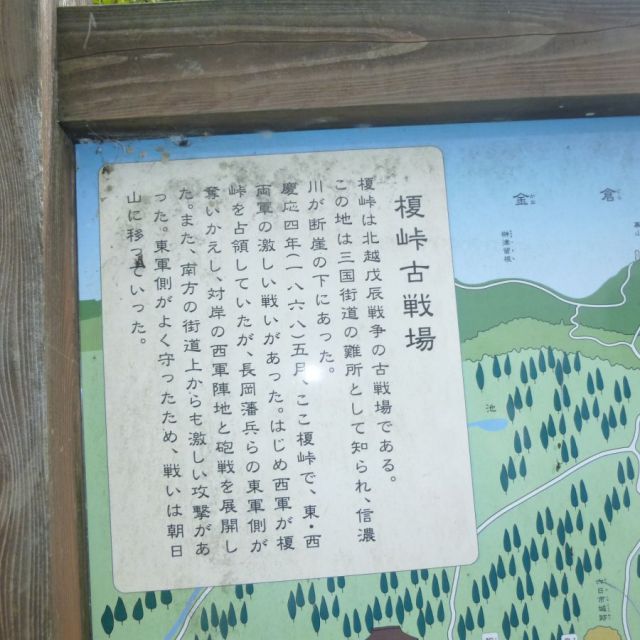 榎峠古戦場
榎峠は北越戊辰戦争の古戦場である。
この地は三国街道の難所として知られ、信濃
川が断崖の下にあった。
慶応四年(一八六八)五月、ここ榎峠で、東・西
両軍の激しい戦いがあった。はじめ西軍が榎
峠を占領していたが、長岡藩兵らの東軍側が
奪いかえし、対岸の西軍陣地と砲戦を展開し
た。また、南方の街道上からも激しい攻撃があ
った。東軍側がよく守ったため、戦いは朝日
山に移っていった。
金倉
池